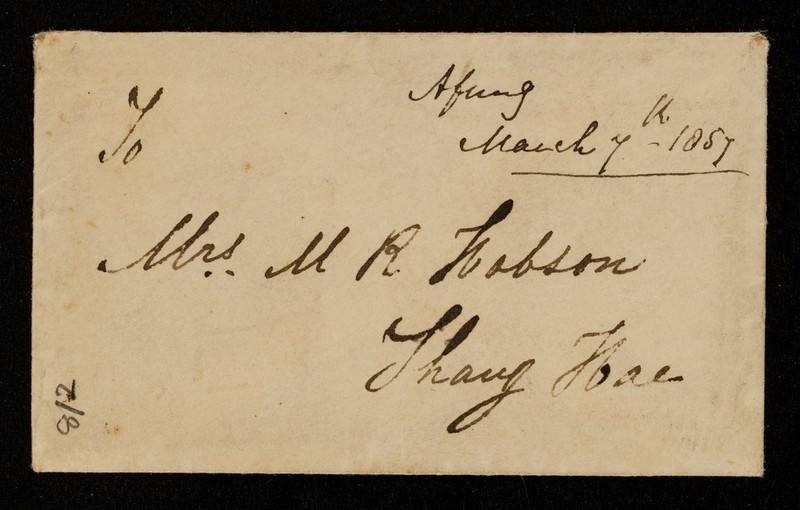 Afung
March 7th - 1857
To
Mrs. M R Hobson
Shang Hae
8/2